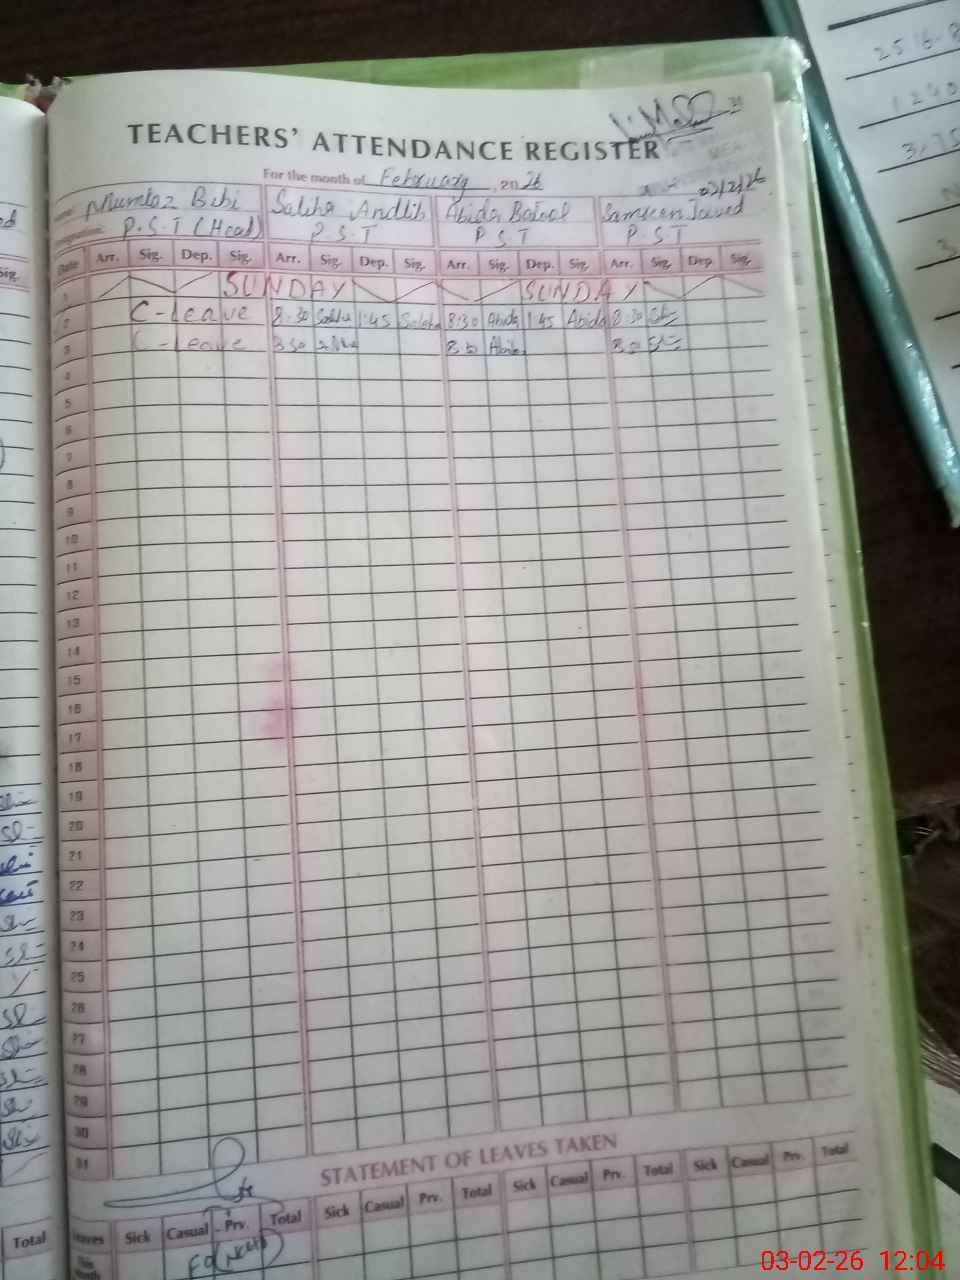 TEACHERS' ATTENDANCE REGISTER
For the month of February, 2026
03/2/26
Name: Mumtaz Bibi Saliha Andlib Abida Batool Samreen Javed
Designation: P.S.T (Head) P.S.T P S T P.S.T
Date Arr. Sig. Dep. Sig. Arr. Sig. Dep. Sig. Arr. Sig. Dep. Sig. Arr. Sig. Dep. Sig.
1 SUNDAY SUNDAY
2 C-Leave 8:30 Saliha 1:45 Saliha 8:30 Abida 1:45 Abida 8:30
3 C-Leave Abida
4
5
6
7
8
9
10
11
12
13
14
15
16
17
18
19
20
21
22
23
24
25
26
27
28
29
30
31
STATEMENT OF LEAVES TAKEN
Leaves Sick Casual Prv. Total Sick Casual Prv. Total Sick Casual Prv. Total Sick Casual Prv. Total
This Month
Total
Sig.
03-02-26 12:04